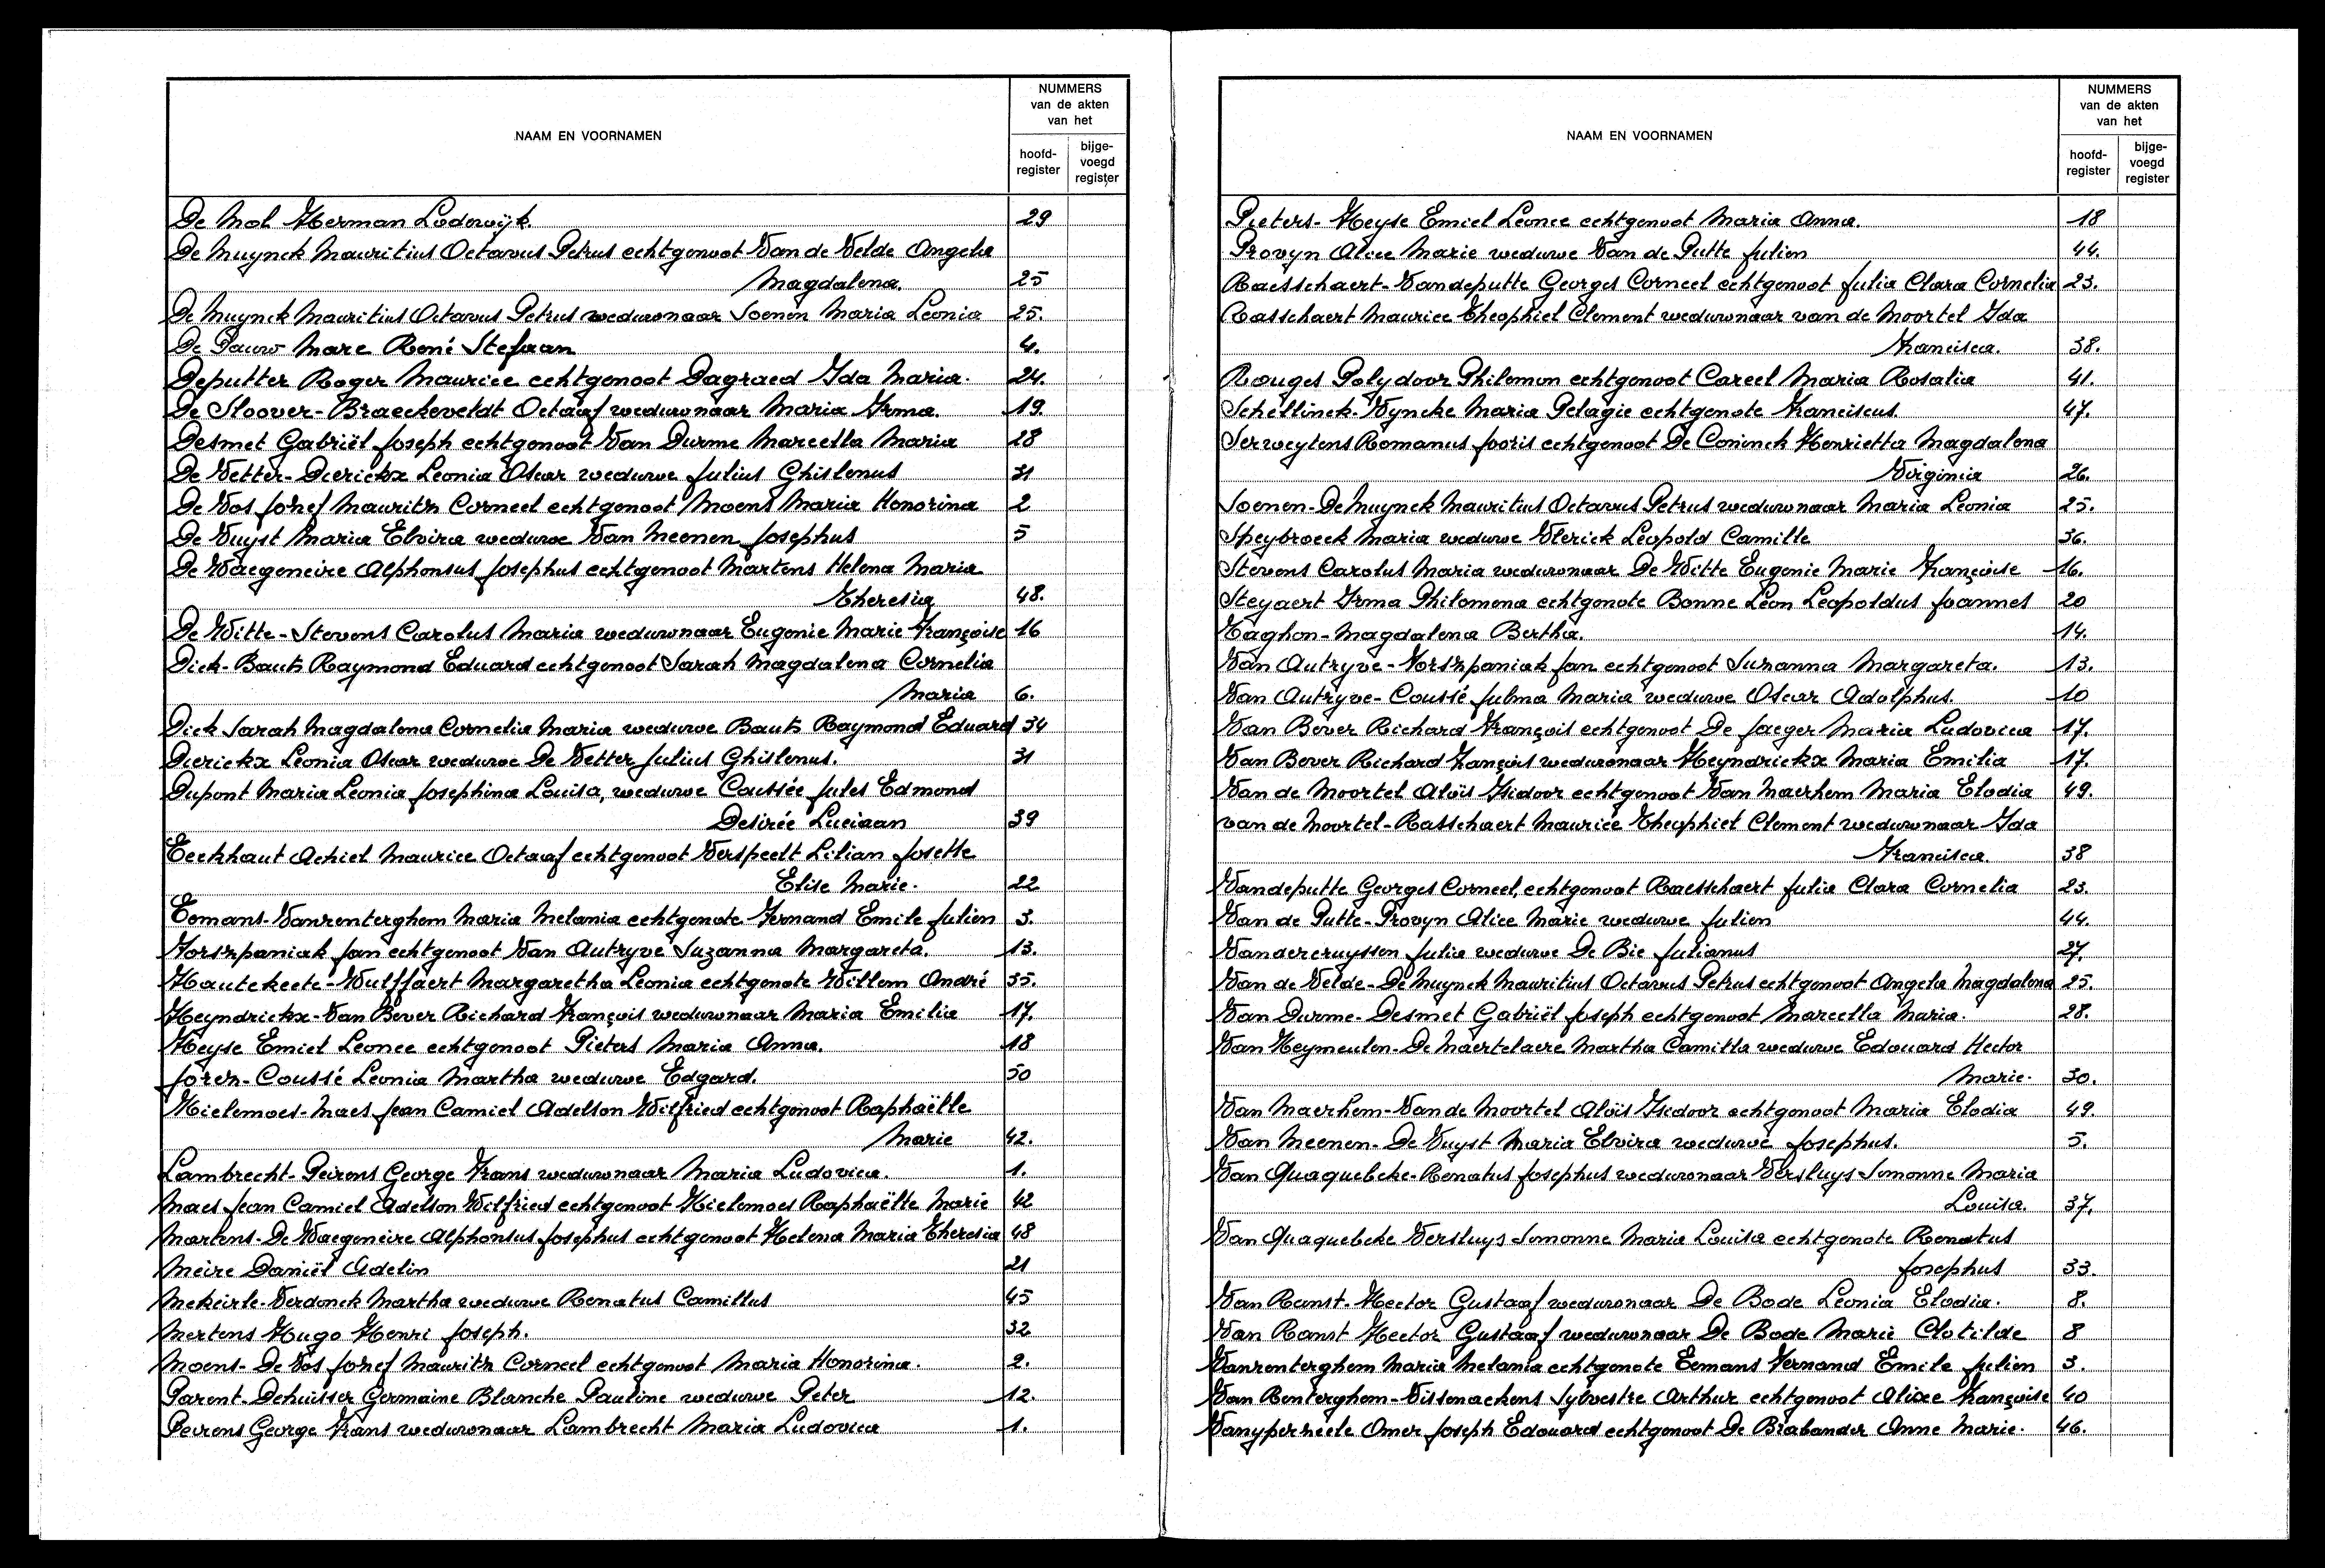 NAAM EN VOORNAMEN
NUMMERS
van de akten
van het
hoofd-
register
bijge-
voegd
register
De Mol Herman Lodewijk. 29
De Muynck Mauritius Octavus Petrus echtgenoot Van de Velde Angela
Magdalena. 25
De Muynck Mauritius Octavus Petrus weduwnaar Soenen Maria Leonia 25.
De Pauw Marc René Stefaan 4.
Deputter Roger Maurice echtgenoot Dagraed Ida Maria. 24.
De Sloover-Braeckeveldt Octaaf weduwnaar Maria Irma. 19.
Desmet Gabriël Joseph echtgenoot Van Durme Marcella Maria 28
De Vetter-Dierickx Leonia Oscar weduwe Julius Ghislenus 31
De Vos Jozef Maurits Corneel echtgenoot Moens Maria Honorina 2
De Vuyst Maria Elvira weduwe Van Meenen Josephus 5
De Waegeneire Alphonsus Josephus echtgenoot Martens Helena Maria
Theresia 48.
De Witte-Stevens Carolus Maria weduwnaar Eugenie Marie Françoise 16
Dick-Bauts Raymond Eduard echtgenoot Sarah Magdalena Cornelia
Maria 6.
Dick Sarah Magdalena Cornelia Maria weduwe Bauts Raymond Eduard 34
Dierickx Leonia Oscar weduwe De Vetter Julius Ghislenus. 31
Dupont Maria Leonia Josephina Louisa, weduwe Coussée Jules Edmond
Desirée Luciaan 39
Eeckhaut Achiel Maurice Octaaf echtgenoot Verspeelt Lilian Josette
Elise Marie. 22
Eemans-Vanrenterghem Maria Melania echtgenote Fernand Emile Julien 3.
Forszpaniak Jan echtgenoot Van Autryve Suzanna Margareta. 13.
Hautekeete-Wulffaert Margaretha Leonia echtgenote Willem André 35.
Heyndrickx-Van Bever Richard François weduwnaar Maria Emilia 17.
Heyse Emiel Leonce echtgenoot Pieters Maria Anna. 18
Joren-Coussé Leonia Martha weduwe Edgard. 50
Kielemoes-Maes Jean Camiel Adelson Wilfried echtgenoot Raphaëlle
Marie 42.
Lambrecht-Peirens George Frans weduwnaar Maria Ludovica. 1.
Maes Jean Camiel Adelson Wilfried echtgenoot Kielemoes Raphaëlle Marie 42
Martens-De Waegeneire Alphonsus Josephus echtgenoot Helena Maria Theresia 48
Meire Daniël Adelin 21
Mekeirle-Verdonck Martha weduwe Renatus Camillus 45
Mertens Hugo Henri Joseph. 32
Moens-De Vos Jozef Maurits Corneel echtgenoot Maria Honorina. 2.
Parent-Dehuisser Germaine Blanche Pauline weduwe Peter 12.
Peirens George Frans weduwnaar Lambrecht Maria Ludovica 1.
NAAM EN VOORNAMEN
NUMMERS
van de akten
van het
hoofd-
register
bijge-
voegd
register
Pieters-Heyse Emiel Leonce echtgenoot Maria Anna. 18
Provyn Alice Marie weduwe Van de Putte Julien 44.
Raesschaert-Vandeputte Georges Corneel echtgenoot Julia Clara Cornelia 23.
Rasschaert Maurice Theophiel Clement weduwnaar van de Moortel Ida
Francisca. 38.
Rouges Polydoor Philemon echtgenoot Careel Maria Rosalia 41.
Schellinck-Wyncke Maria Pelagie echtgenote Franciscus. 47.
Serweytens Romanus Jooris echtgenoot De Coninck Henrietta Magdalena
Virginia 26.
Soenen-De Muynck Mauritius Octavus Petrus weduwnaar Maria Leonia 25.
Speybroeck Maria weduwe Vlerick Leopold Camille 36.
Stevens Carolus Maria weduwnaar De Witte Eugenie Marie Françoise 16.
Steyaert Irma Philomena echtgenote Bonne Leon Leopoldus Joannes 20
Taghon-Magdalena Bertha. 14.
Van Autryve-Forszpaniak Jan echtgenoot Suzanna Margareta. 13.
Van Autryve-Coussé Julma Maria weduwe Oscar Adolphus. 10
Van Bever Richard François echtgenoot De Jaeger Maria Ludovica 17.
Van Bever Richard François weduwnaar Heyndrickx Maria Emilia 17.
Van de Moortel Aloïs Isidoor echtgenoot Van Maerhem Maria Elodia 49.
van de Moortel-Rasschaert Maurice Theophiel Clement weduwnaar Ida
Francisca. 38
Vandeputte Georges Corneel, echtgenoot Raesschaert Julia Clara Cornelia 23.
Van de Putte-Provyn Alice Marie weduwe Julien 44.
Vandercruyssen Julia weduwe De Bie Julianus 27.
Van de Velde-De Muynck Mauritius Octavus Petrus echtgenoot Angela Magdalena 25.
Van Durme-Desmet Gabriël Joseph echtgenoot Marcella Maria. 28.
Van Heymeulen-De Maertelaere Martha Camilla weduwe Edouard Hector
Marie. 30.
Van Maerhem-Van de Moortel Aloïs Isidoor echtgenoot Maria Elodia 49.
Van Meenen-De Vuyst Maria Elvira weduwe Josephus. 5.
Van Quaquebeke-Renatus Josephus weduwnaar Versluys Simonne Maria
Louisa. 37.
Van Quaquebeke Versluys Simonne Maria Louisa echtgenote Renatus
Josephus 33.
Van Ranst-Hector Gustaaf weduwnaar De Bode Leonia Elodia. 8.
Van Ranst Hector Gustaaf weduwnaar De Bode Marie Clotilde 8
Vanrenterghem Maria Melania echtgenote Eemans Fernand Emile Julien 3.
Van Renterghem-Vissenaekens Sylvestre Arthur echtgenoot Alixe Françoise 40
Vanypersele Omer Joseph Edouard echtgenoot De Brabander Anne Marie. 46.